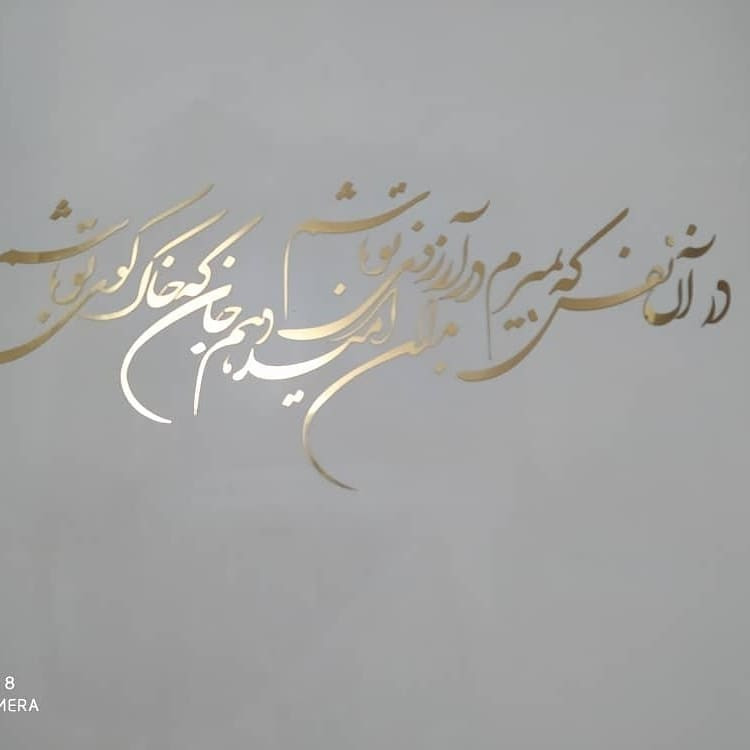 در آن نفس که بمیرم در آرزوی تو باشم
بدان امید دهم جان که خاک کوی تو باشم
8
MERA